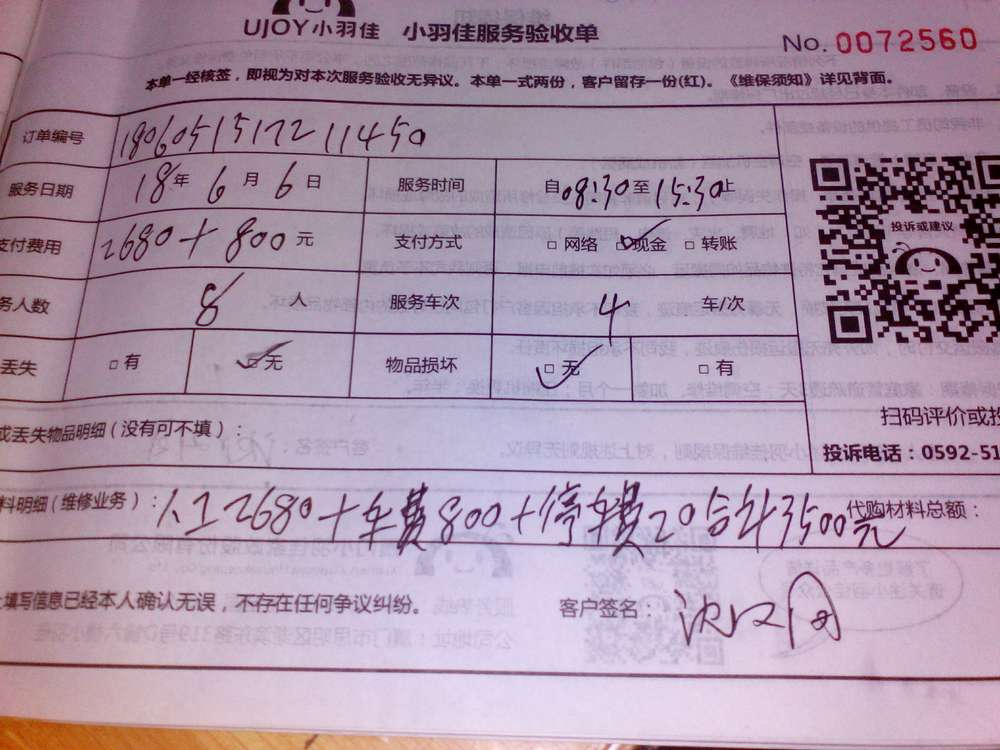 UJOY小羽佳 小羽佳服务验收单
No. 0072560
本单一经核签，即视为对本次服务验收无异议。本单一式两份，客户留存一份(红)。《维保须知》详见背面。
订单编号 1806051517211450
服务日期 18年 6月 6日 服务时间 自08:30至15:30止
支付费用 2680+800元 支付方式 □网络 □现金 □转账
投诉或建议
务人数 8 人 服务车次 4 车/次
丢失 □有 □无 物品损坏 □无 □有
扫码评价或投
或丢失物品明细（没有可不填）：
投诉电话：0592-51
料明细（维修业务）：人工2680+车费800+停车费20合计3500元 代购材料总额：
填写信息已经本人确认无误，不存在任何争议纠纷。 客户签名：